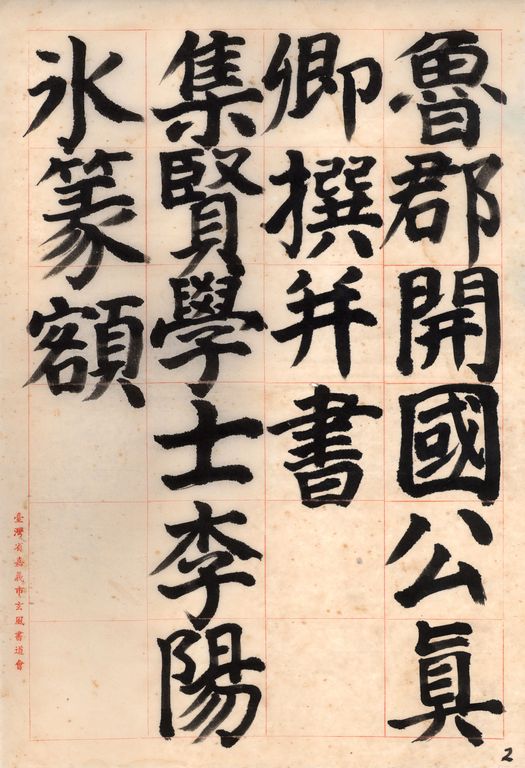 魯郡開國公眞
卿撰并書
集賢學士李陽
氷篆額
臺灣省嘉義市玄風書道會
2